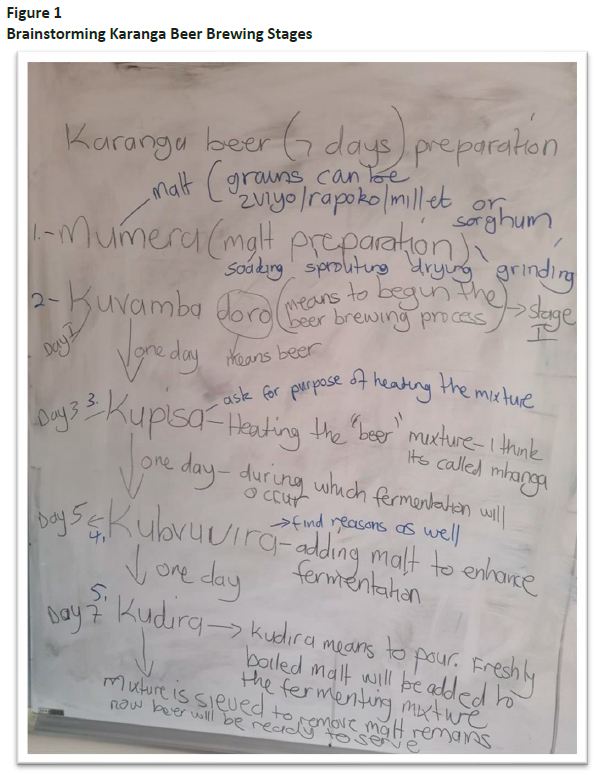 Figure 1
Brainstorming Karanga Beer Brewing Stages
Karanga beer (7 days) preparation
malt (grains can be
zviyo/rapoko/millet or
sorghum
1.- Mumera (malt preparation)
soaking sprouting drying grinding
2- Kuvamba doro (means to begin the
beer brewing process) → stage
I
Day I
one day means beer
ask for purpose of heating the mixture
Day 3 3. Kupisa - Heating the "beer" mixture - I think
its called mhanga
one day - during which fermentation will
occur
→ find reasons as well
Day 5 ← 4. Kubvuvira - adding malt to enhance
fermentation
one day
5.
Day 7 Kudira → Kudira means to pour. Freshly
boiled malt will be added to
the fermenting mixture
Mixture is sieved to remove malt remains
now beer will be ready to serve